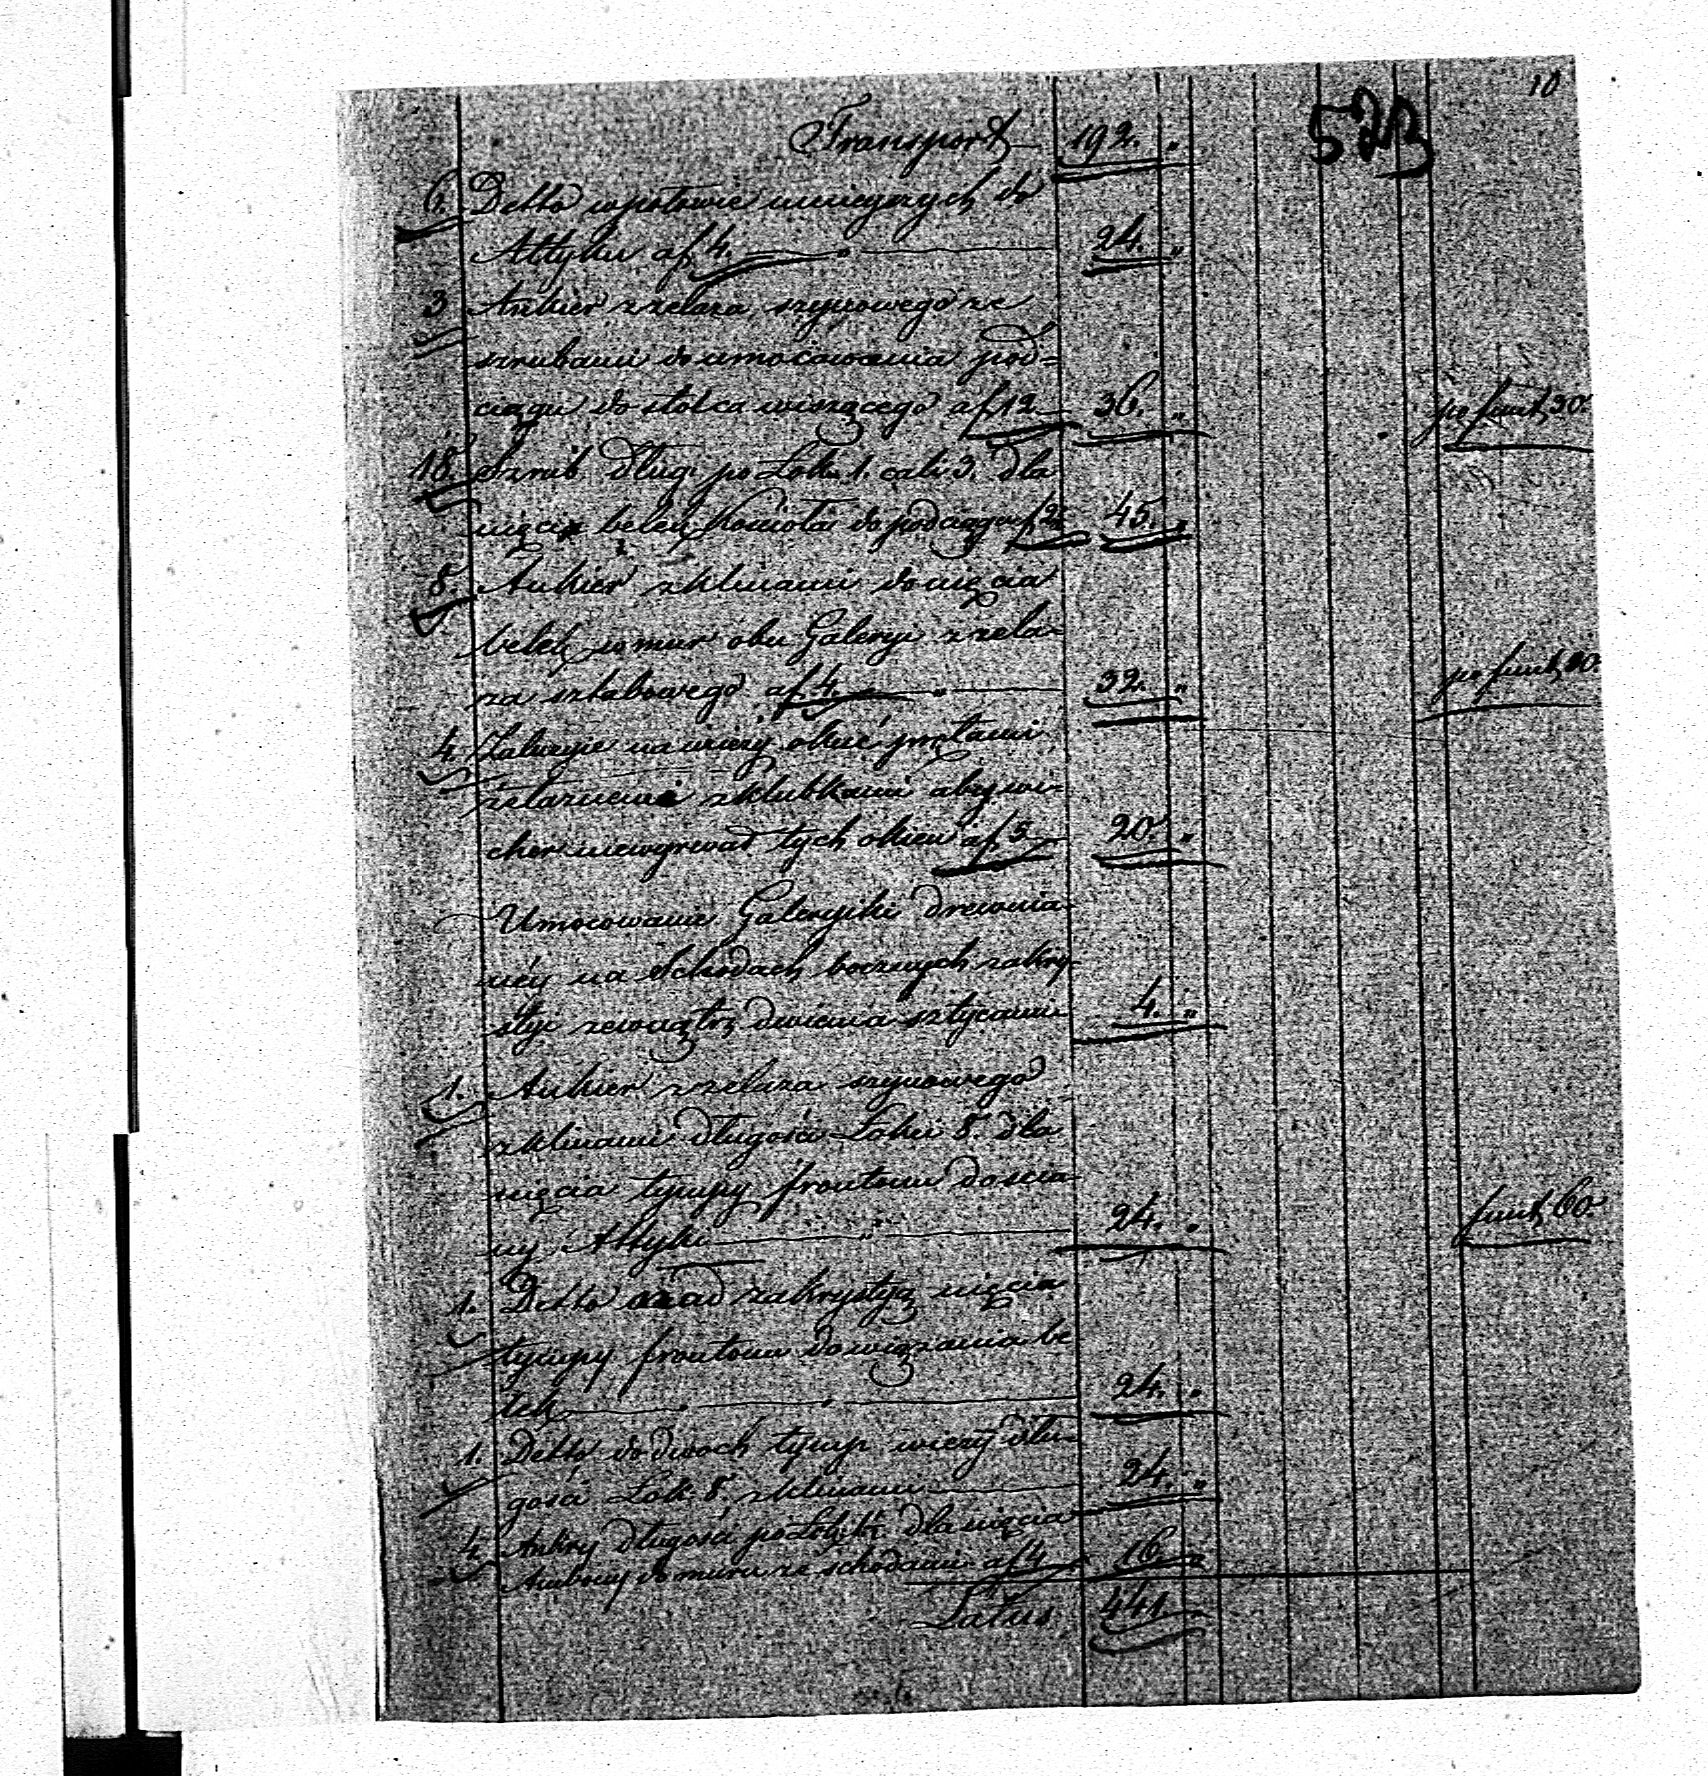 10
523
Transport 192. „
6. Detto w piotowie mniejszych do
Attyku af 4. — „ — 24. „
3 Ankier z żelaza szynowego ze
szrubami do umocowania pod-
ciągu do stolca wiszącego af 12 — 36. „ po funt 30.
18 Szrub długi po Łok. 1. cali 3. dla
ujęcia belek Kościoła do podciągu af 2½ 45. „
8. Ankier z klinami do ujęcia
belek w mur obu Galeryi z żela-
za sztabowego af 4. — „ — 32. „ po funt 20.
4. Żaluzyie na wieży okuć prętami
żelaznemi z klubkami aby wi-
cher niewyrwał tych okien af 5 20. „
Umocowanie Galeryiki drewnia-
néy na Schodach bocznych zakry-
styi zewnątrz dwiema sztycami 4. „
1. Ankier z żelaza szynowego
z klinami długości Łokci 8. dla
ujęcia tympy frontonu do ścia-
ny Attyki — „ — 24. „ funt 60.
1. Detto nad zakrystyą ujęcia
tympy frontonu do wiązania be
lek — „ — „ — 24. „
1. Detto do dwóch tymp wieży dłu-
gości Łok. 8. z klinami — 24. „
4. Ankry długości po Łok. dla ujęcia
Ambony do muru ze schodami af 4 16. „
Latus 441